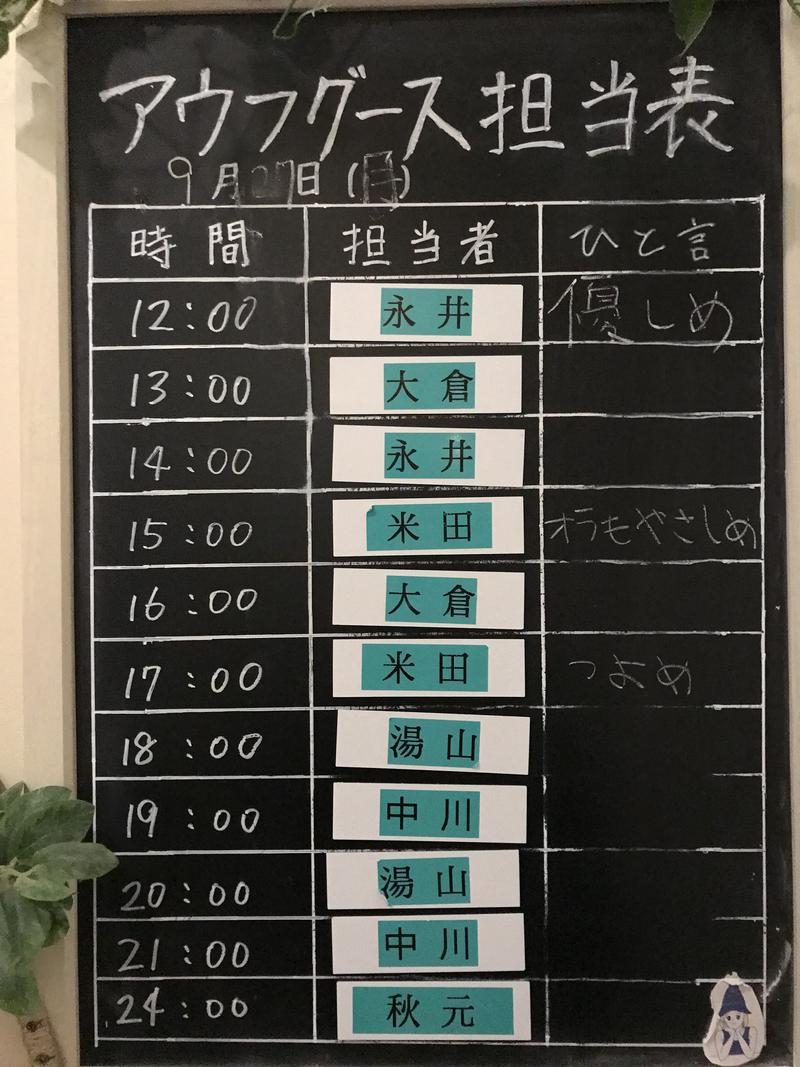 アウフグース担当表
9月27日(月)
時間 担当者 ひと言
12:00 永井 優しめ
13:00 大倉
14:00 永井
15:00 米田 オラもやさしめ
16:00 大倉
17:00 米田 つよめ
18:00 湯山
19:00 中川
20:00 湯山
21:00 中川
24:00 秋元